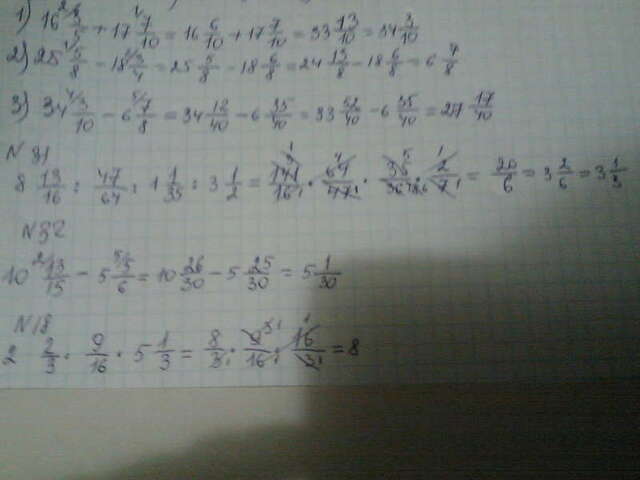 1) 16 2/ 3/5 + 17 1/ 7/10 = 16 6/10 + 17 7/10 = 33 13/10 = 34 3/10
2) 25 1/ 5/8 - 18 2/ 3/4 = 25 5/8 - 18 6/8 = 24 13/8 - 18 6/8 = 6 7/8
3) 34 4/ 3/10 - 6 5/ 7/8 = 34 12/40 - 6 35/40 = 33 52/40 - 6 35/40 = 27 17/40
N 31
8 13/16 : 47/64 : 1 1/35 : 3 1/2 = 141/16 · 64/47 · 35/36 · 2/7 = 20/6 = 3 2/6 = 3 1/3
N32
10 2/ 13/15 - 5 5/ 5/6 = 10 26/30 - 5 25/30 = 5 1/30
N18
2 2/3 · 9/16 · 5 1/3 = 8/3 · 9/16 · 16/3 = 8